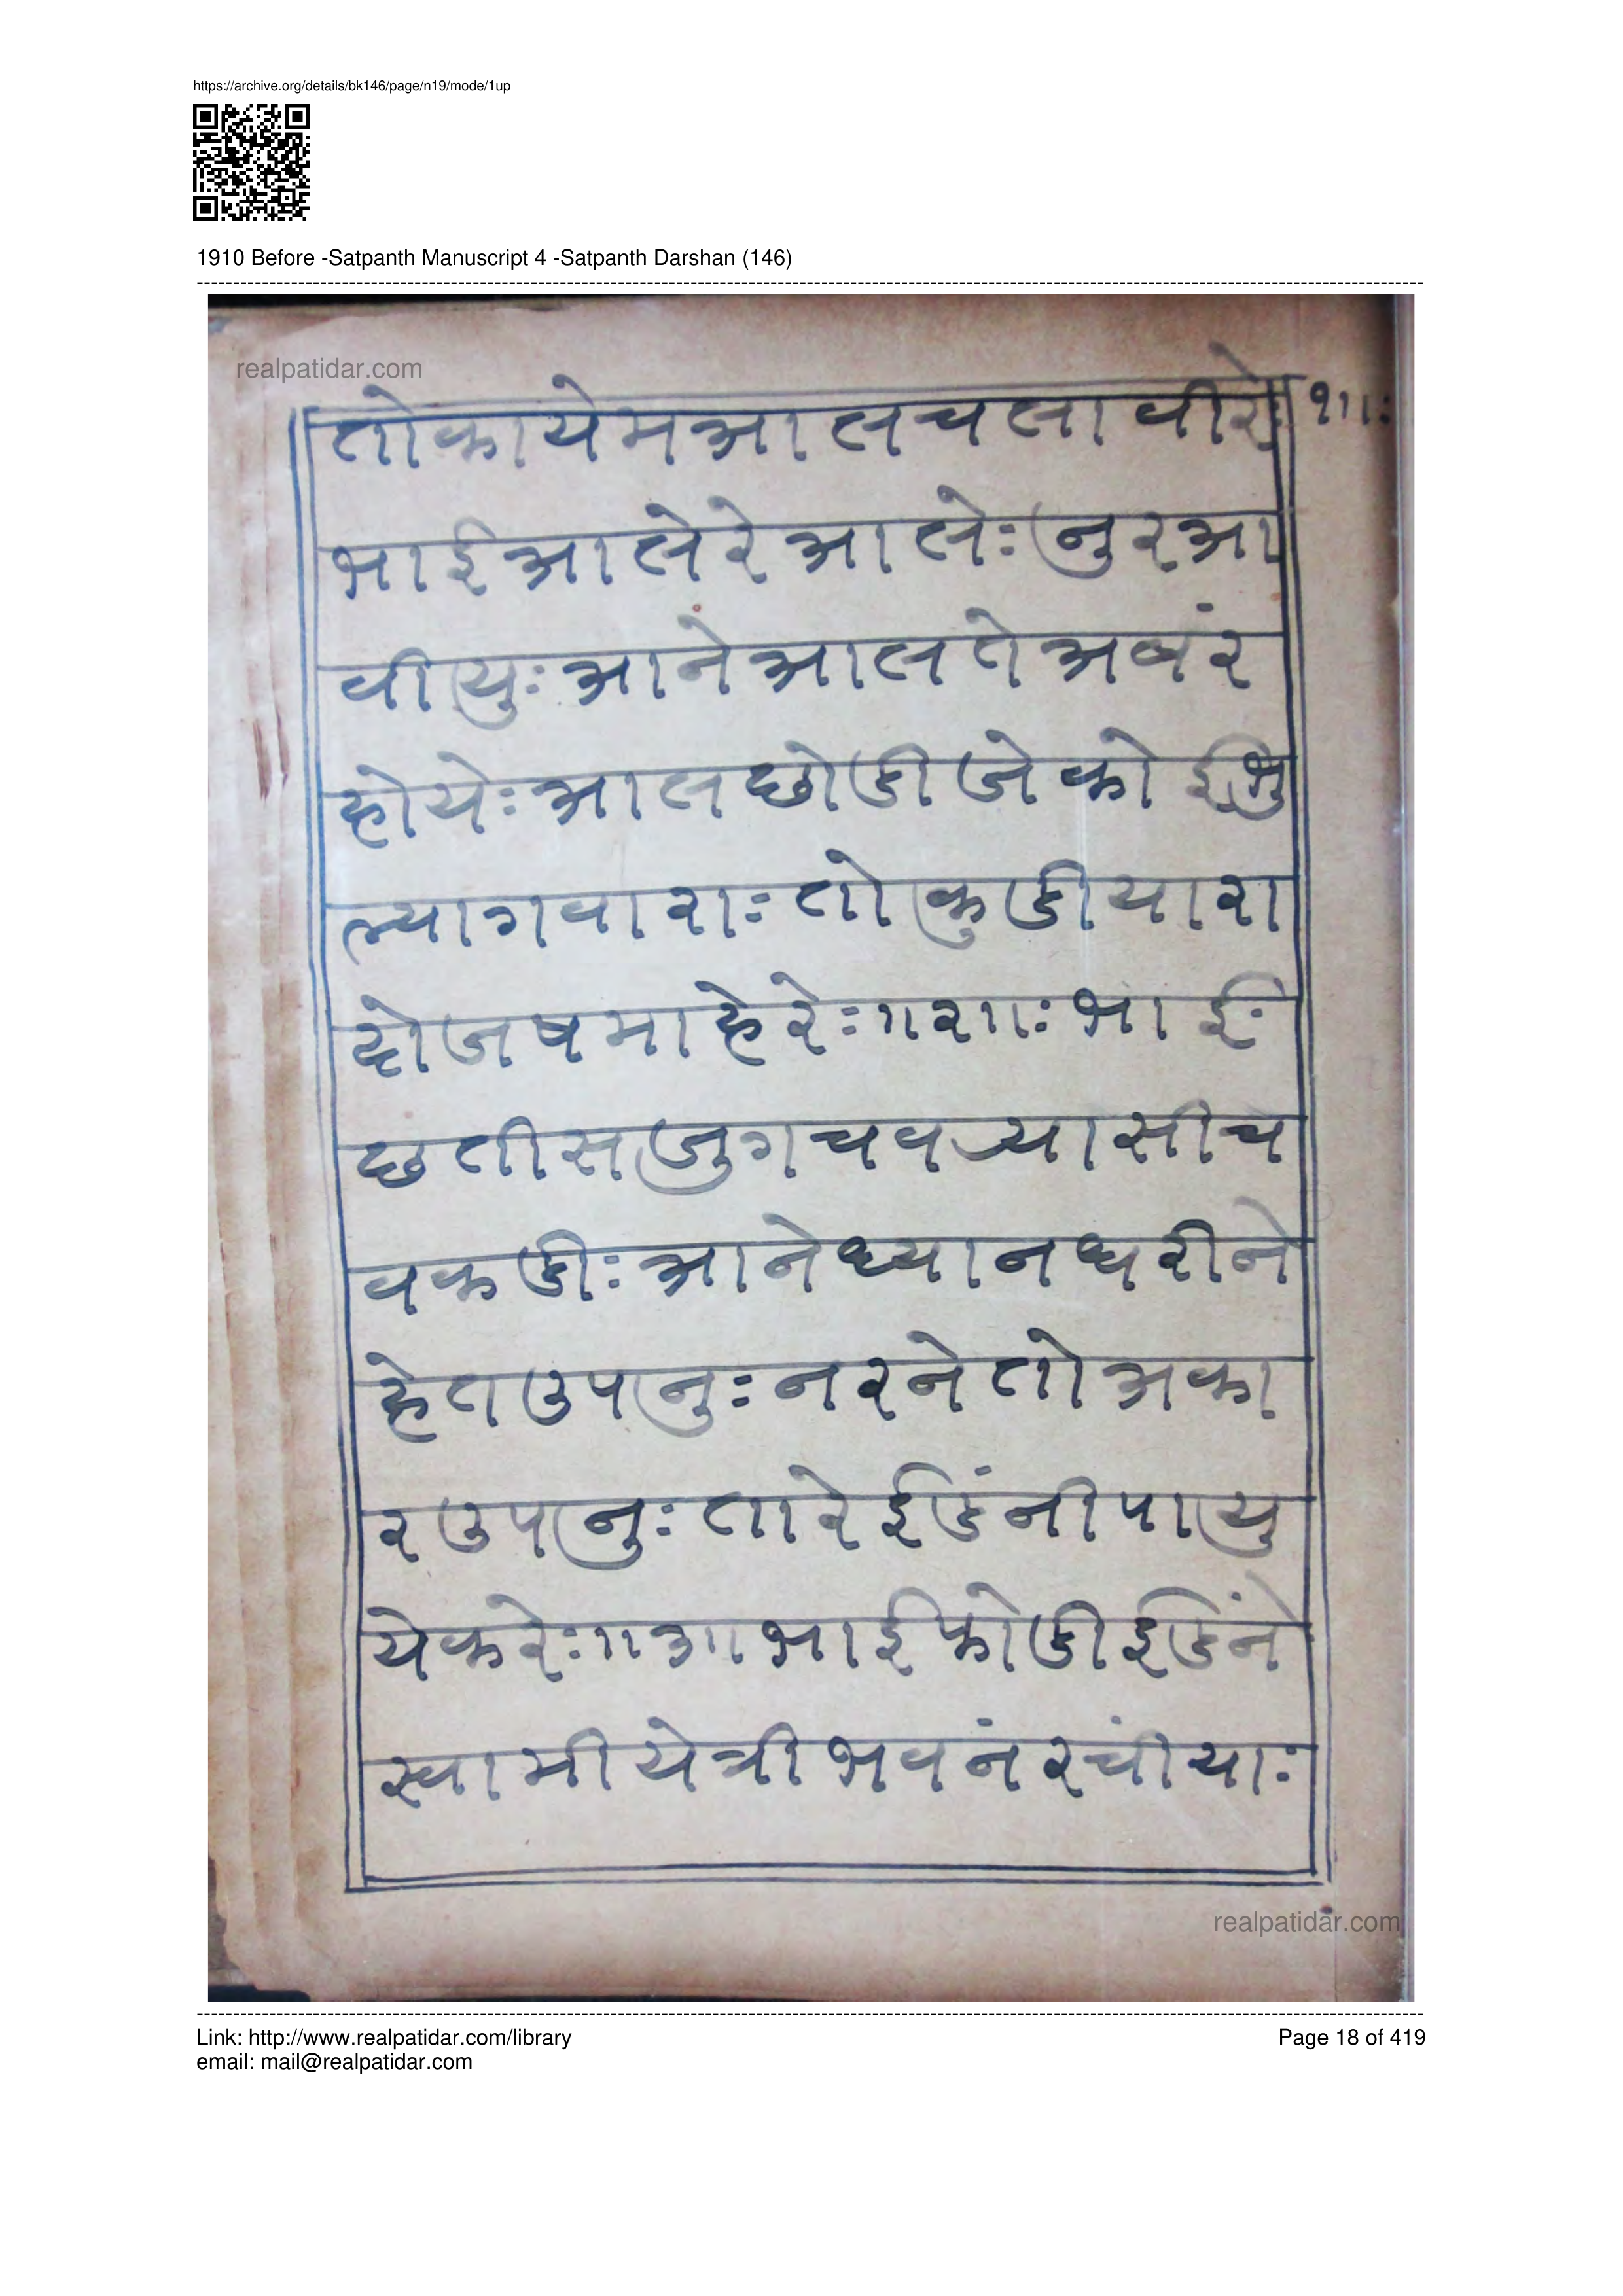 https://archive.org/details/bk146/page/n19/mode/1up
1910 Before -Satpanth Manuscript 4 -Satpanth Darshan (146)
realpatidar.com
तोकायेमआलचलावीरेः १॥ः
भाईआलेरेआलेः नुरआ
वीयुः आनेआलतेअबंर
होयेः आलछोडीजेकोईभु
ल्यागवाराः तोकुडीयारा
दोजषमाहेरेः ॥२॥ः भाईः
छतीसजुगचवर्‍यासीच
वकडीः आनेध्यानधरीने
हेतउपनुः नरनेतोअका
रउपनुः तारेईडंनीपायु
येकरेः ॥३॥ भाईफोडीईडंने
स्वामीयेत्रीभवनंरचींयाः
realpatidar.com
Link: http://www.realpatidar.com/library
email: mail@realpatidar.com
Page 18 of 419